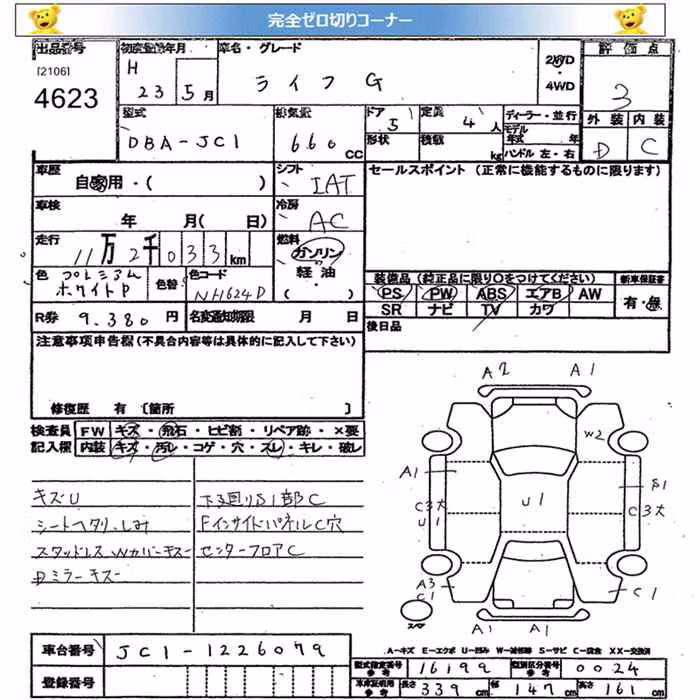 完全ゼロ切りコーナー
出品番号 初度登録年月 車名・グレード 2WD・4WD 評価点
[2106] H 23 5月 ライフ G 3
4623 型式 排気量 ドア 5 定員 4人 ディーラー・並行 外装 内装
DBA-JC1 660cc 形状 積載 kg モデル年式 年 D C
ハンドル 左・右
車歴 シフト セールスポイント (正常に機能するものに限ります)
自家用・( ) IAT
車検 年 月( 日) 冷房 AC
走行 11万2千033km 燃料 ガソリン
軽油
( )
色 プレミアムホワイトP 色替 色コード NH624P 装備品 (純正品に限り○をつけてください) 新車保証書
PS PW ABS エアB AW 有・無
SR ナビ TV カワ
R券 9.380円 名変通知期限 月 日 後日品
注意事項申告欄 (不具合内容等は具体的に記入して下さい)
修復歴 有 [箇所 ]
検査員 FW キズ・飛石・ヒビ割・リペア跡・×要
記入欄 内装 キズ・汚レ・コゲ・穴・スレ・キレ・破レ
キズU 下廻りS1部C
シートヘタリ、しみ Fインサイドパネル C穴
スタッドレス Wカバーキズー センターフロアC
Dミラーキズー
A2 A1
W2
A1 S1
C3大 U1 U1 C3大
A3 C1 C1
スペア A1 A1
A-キズ E-エクボ U-凹み W-補修跡 S-サビ C-腐食 XX-交換済
車台番号 JC1-1226079
登録番号
型式指定番号 参考 16199 類別区分番号 参考 0024
車庫証明用 参考 長さ 339cm 幅 147cm 高さ 161cm